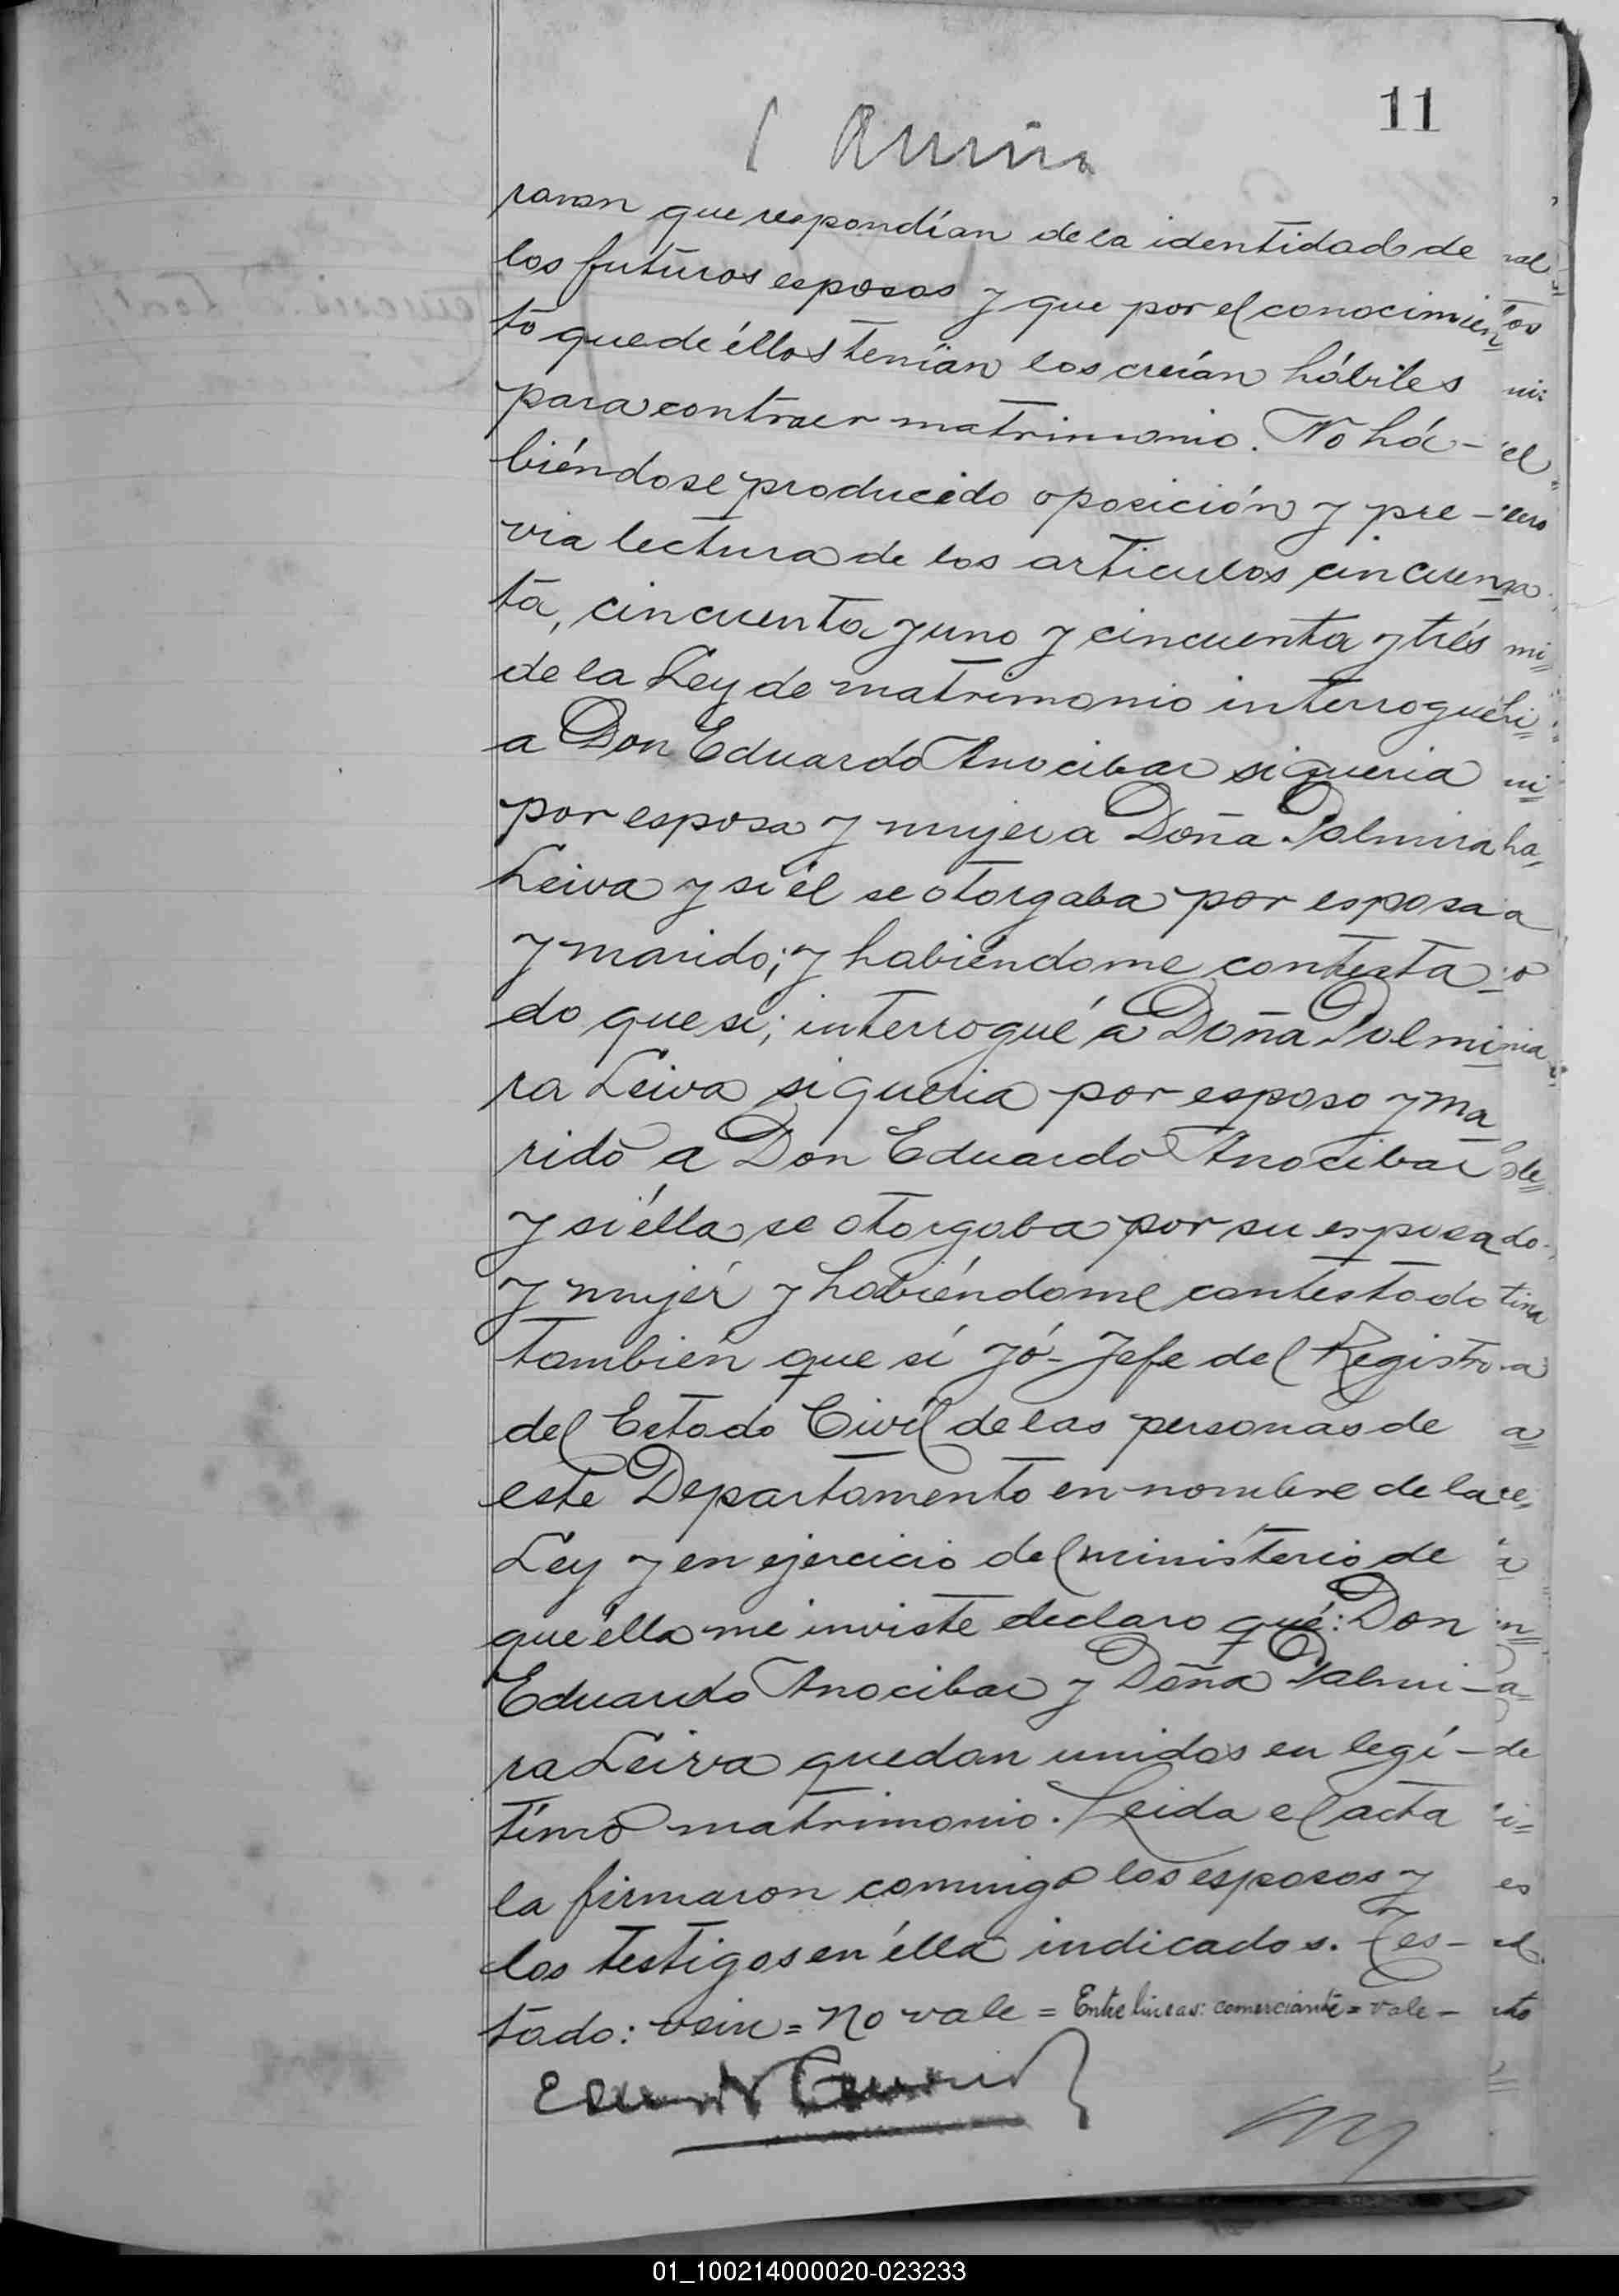 11
raran que respondían de la identidad de
los futuros esposos y que por el conocimien
to que de éllos tenían los creían hábiles
para contraer matrimonio. No há-
biéndose producido oposición y pre-
via lectura de los articulos cincuen
ta, cincuenta y uno y cincuenta y trés
de la Ley de matrimonio interrogué
a Don Eduardo Anocibar si queria
por esposa y mujer a Doña Palmira
Leiva y si él se otorgaba por esposo
y marido; y habiéndome contesta
do que si; interrogué a Doña Palmi
ra Leiva si queria por esposo y ma
rido a Don Eduardo Anocibar
y si élla se otorgaba por su esposa
y mujér y habiéndome contestado
también que sí yó-Jefe del Registro
del Estado Civil de las personas de
este Departamento en nombre de la
Ley y en ejercicio del ministerio de
que élla me inviste declaro qué: Don
Eduardo Anocibar y Doña Palmi-
ra Leiva quedan unidos en legí-
timo matrimonio. Leida el acta
la firmaron conmigo los esposos y
los testigos en élla indicados. Tes-
tado: vein = No vale = Entre lineas: comerciante = vale -
01_100214000020-023233